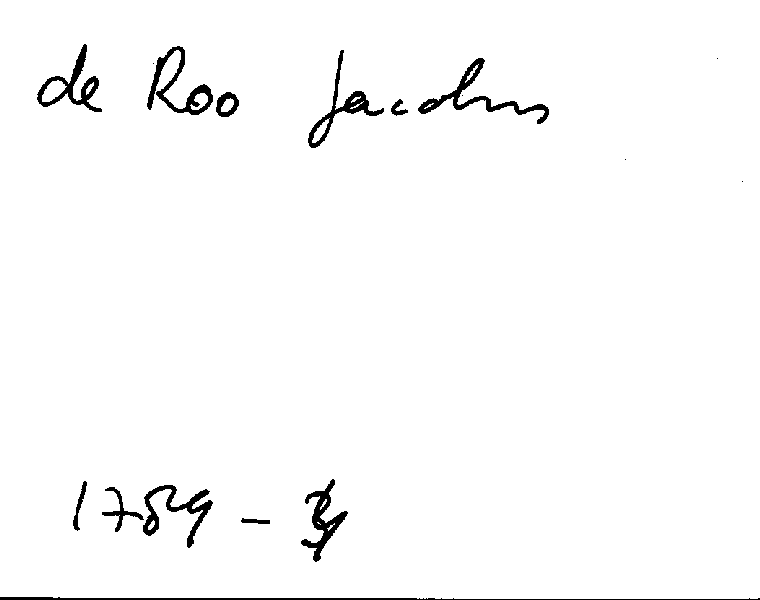 de Roo Jacobus
1789 -